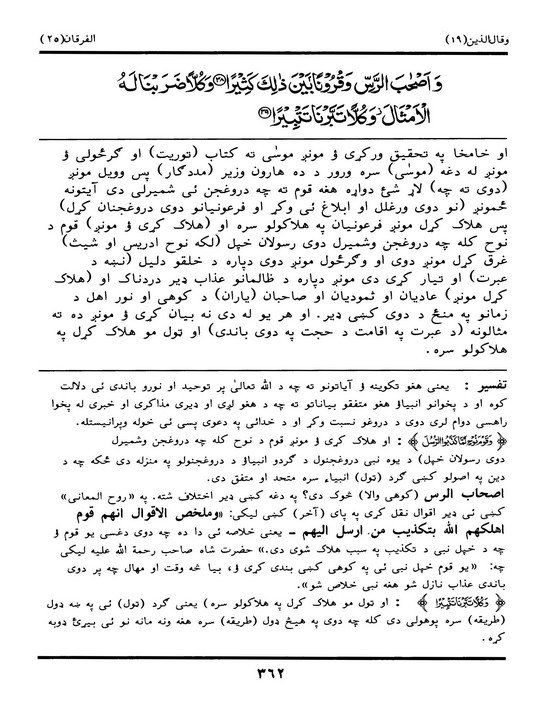 وقال الذین(۱۹) الفرقان(۲۵)
وَاَصْحٰبَ الرَّسِّ وَقُرُوْنًۢا بَیْنَ ذٰلِكَ كَثِیْرًا ﴿۳۸﴾ وَكُلًّا ضَرَبْنَا لَهُ
الْاَمْثَالَ وَكُلًّا تَبَّرْنَا تَتْبِیْرًا ﴿۳۹﴾
او خامخا په تحقیق ورکړی ؤ مونږ موسٰی ته کتاب (توریت) او ګرځولی ؤ
مونږ له دغه (موسٰی) سره ورور د ده هارون وزیر (مددګار) پس وویل مونږ
(دوی ته چه) لاړ شئ دواړه هغه قوم ته چه دروغجن ئی شمیرلی دی آیتونه
ځمونږ (نو دوی ورغلل او ابلاغ ئی وکړ او فرعونیانو دوی دروغجنان کړل)
پس هلاک کړل مونږ فرعونیان په هلاکولو سره او (هلاک کړی ؤ مونږ) قوم د
نوح کله چه دروغجن وشمیرل دوی رسولان خپل (لکه نوح ادریس او شیث)
غرق کړل مونږ دوی او وګرځول مونږ دوی دپاره د خلقو دلیل (نښه د
عبرت) او تیار کړی دی مونږ دپاره د ظالمانو عذاب ډیر دردناک او (هلاک
کړل مونږ) عادیان او ثمودیان او صاحبان (یاران) د کوهی او نور اهل د
زمانو په منځ د دوی کښی ډیر. او هر یو له دی نه بیان کړی ؤ مونږ ده ته
مثالونه (د عبرت په اقامت د حجت په دوی باندی) او ټول مو هلاک کړل په
هلاکولو سره.
تفسیر : یعنی هغو تکوینه ؤ آیاتونو ته چه د الله تعالیٰ پر توحید او نورو باندی ئی دلالت
کوه او د پخوانو انبیاؤ هغو متفقو بیاناتو ته چه د هغو لږی او ډیری مذاکری او خبری له پخوا
راهسی دوام لری دوی د دروغو نسبت وکړ او د خدائی په دعوی پسی ئی خوله ویرانیستله.
﴿وَقَوْمَ نُوْحٍ لَّمَّا كَذَّبُوا الرُّسُلَ﴾ : او هلاک کړی ؤ مونږ قوم د نوح کله چه دروغجن وشمیرل
دوی رسولان خپل) د یوه نبی دروغجنول د ګردو انبیاؤ د دروغجنولو په منزله دی ځکه چه د
دین په اصولو کښی ګرد (ټول) انبیاء سره متحد او متفق دی.
اصحاب الرس (کوهی والا) څوک دی؟ په دغه کښی ډیر اختلاف شته. په «روح المعانی»
کښی ئی ډیر اقوال نقل کړی په پای (آخر) کښی لیکی: «وملخص الاقوال انهم قوم
اهلکهم الله بتکذیب من ارسل الیهم ـ یعنی خلاصه ئی دا ده چه دوی دغسی یو قوم ؤ
چه د خپل نبی د تکذیب په سبب هلاک شوی دی.» حضرت شاه صاحب رحمة الله علیه لیکی
چه: «یو قوم خپل نبی ئی په کوهی کښی بندی کړی ؤ، بیا څه وقت او مهال چه پر دوی
باندی عذاب نازل شو هغه نبی خلاص شو».
﴿وَكُلًّا تَبَّرْنَا تَتْبِیْرًا﴾ : او ټول مو هلاک کړل په هلاکولو سره) یعنی ګرد (ټول) ئی په ښه ډول
(طریقه) سره پوهولی دی کله چه دوی په هیڅ ډول (طریقه) سره هغه ونه مانه نو ئی بیړئ ډوبه
کړه.
۳۶۲